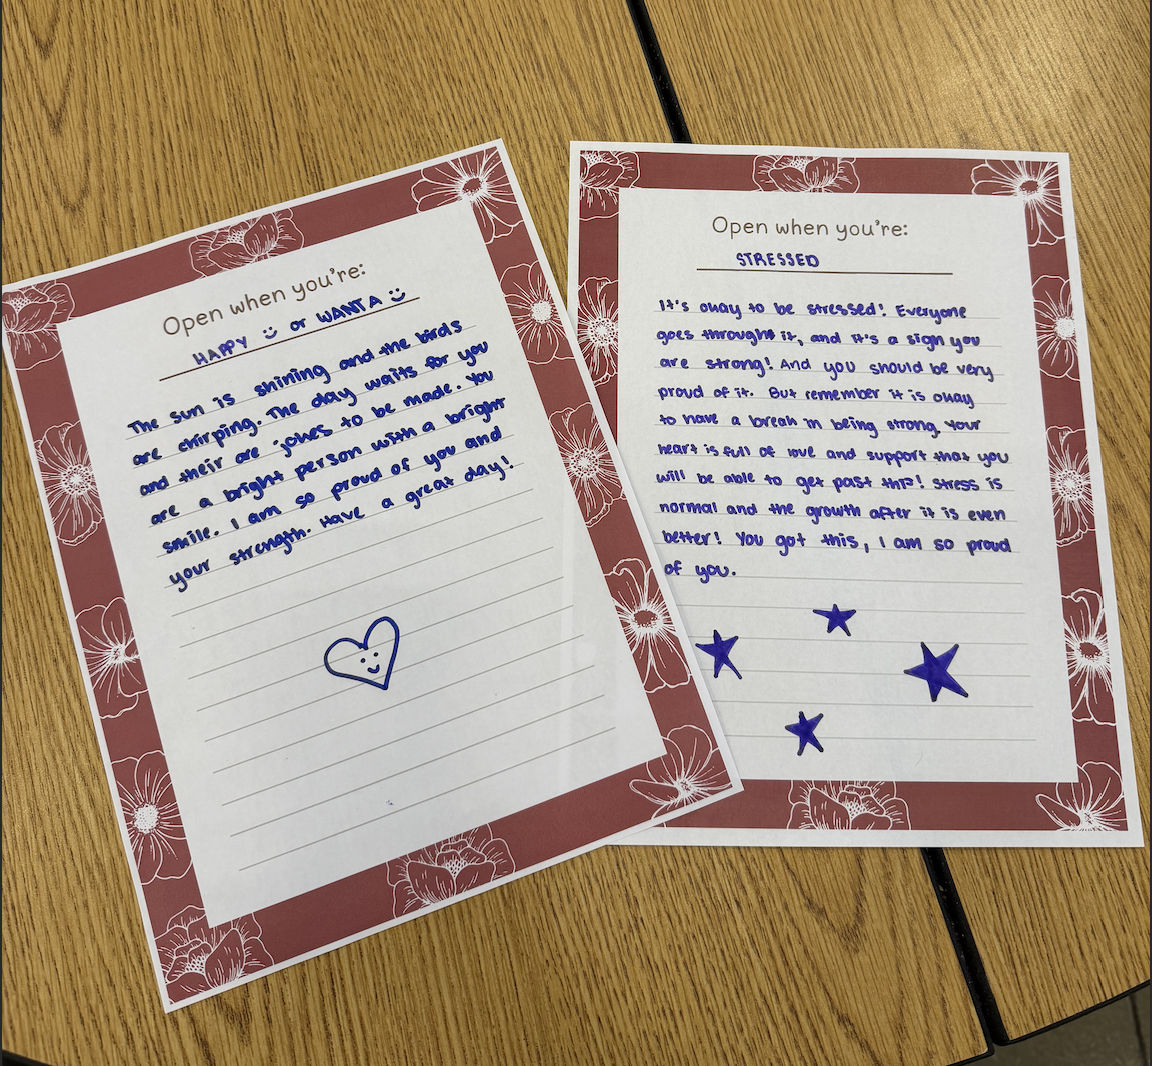 Open when you're:
HAPPY or WANTA
The sun is shining and the birds
are chirping. The day waits for you
and their are jokes to be made. You
are a bright person with a bright
smile. I am so proud of you and
your strength. Have a great day!
Open when you're:
STRESSED
It's okay to be stressed! Everyone
goes through it, and it's a sign you
are strong! And you should be very
proud of it. But remember it is okay
to have a break in being strong. Your
heart is full of love and support that you
will be able to get past this! Stress is
normal and the growth after it is even
better! You got this, I am so proud
of you.